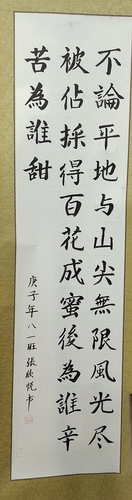 不論平地与山尖無限風光尽
被佔採得百花成蜜後為誰辛
苦為誰甜
庚子年八一班張欣悅书